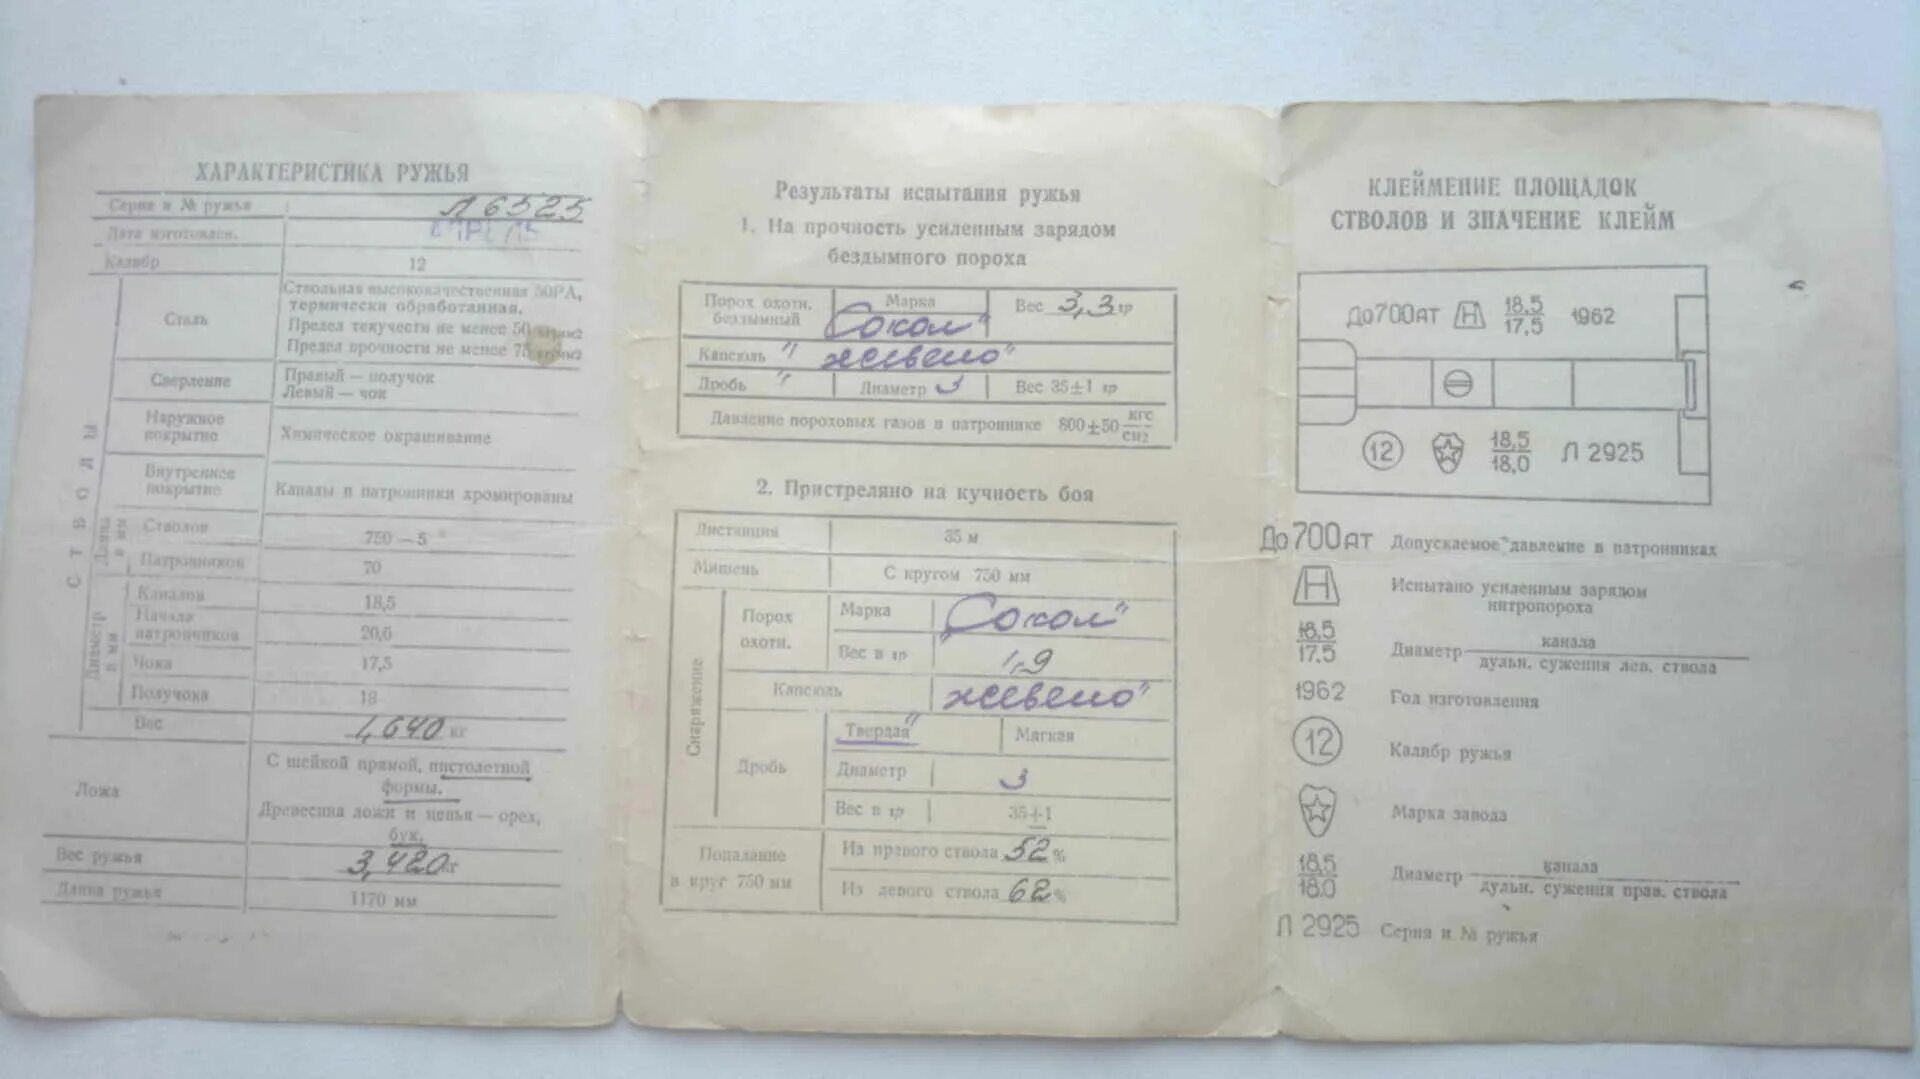 ХАРАКТЕРИСТИКА РУЖЬЯ
Серия и № ружья Л 6525
Дата изготовлен.
Калибр 12
СТВОЛЫ
Сталь Ствольная высококачественная 50РА,
термически обработанная.
Предел текучести не менее 50 кг/мм2
Предел прочности не менее 75 кг/мм2
Сверление Правый — получок
Левый — чок
Наружное покрытие Химическое окрашивание
Внутреннее покрытие Каналы и патронники хромированы
Длина в мм
Стволов 750 — 5
Патронников 70
Диаметр в мм
Каналов 18,5
Начала патронников 20,6
Чока 17,5
Получока 18
Вес 1,640 кг
Ложа С шейкой прямой, пистолетной
формы.
Древесина ложи и цевья — орех,
бук.
Вес ружья 3,420 кг
Длина ружья 1170 мм
Результаты испытания ружья
1. На прочность усиленным зарядом
бездымного пороха
Порох охотн. бездымный Марка „Сокол" Вес 3,3 гр
Капсюль " жевело"
Дробь " Диаметр 3 Вес 35±1 гр
Давление пороховых газов в патроннике 800±50 кгс/см2
2. Пристреляно на кучность боя
Дистанция 35 м
Мишень С кругом 750 мм
Снаряжение
Порох охотн. Марка „Сокол"
Вес в гр 1,9
Капсюль жевело"
Дробь Твердая" Мягкая
Диаметр 3
Вес в гр 35±1
Попадание в круг 750 мм
Из правого ствола 52 %
Из левого ствола 62 %
КЛЕЙМЕНИЕ ПЛОЩАДОК
СТВОЛОВ И ЗНАЧЕНИЕ КЛЕЙМ
До 700 АТ Н 18,5/17,5 1962
12 18,5/18,0 Л 2925
До 700 АТ Допускаемое давление в патронниках
Н Испытано усиленным зарядом
нитропороха
18,5/17.5 Диаметр канала/дульн. сужения лев. ствола
1962 Год изготовления
12 Калибр ружья
Марка завода
18,5/18.0 Диаметр канала/дульн. сужения прав. ствола
Л 2925 Серия и № ружья